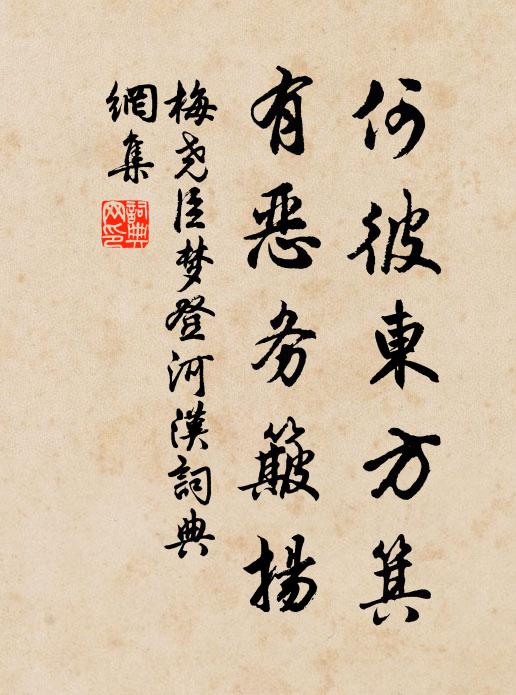 何彼東方箕
有惡务簸揚
梅尧臣梦登河漢詞典
網集
詞典
网印